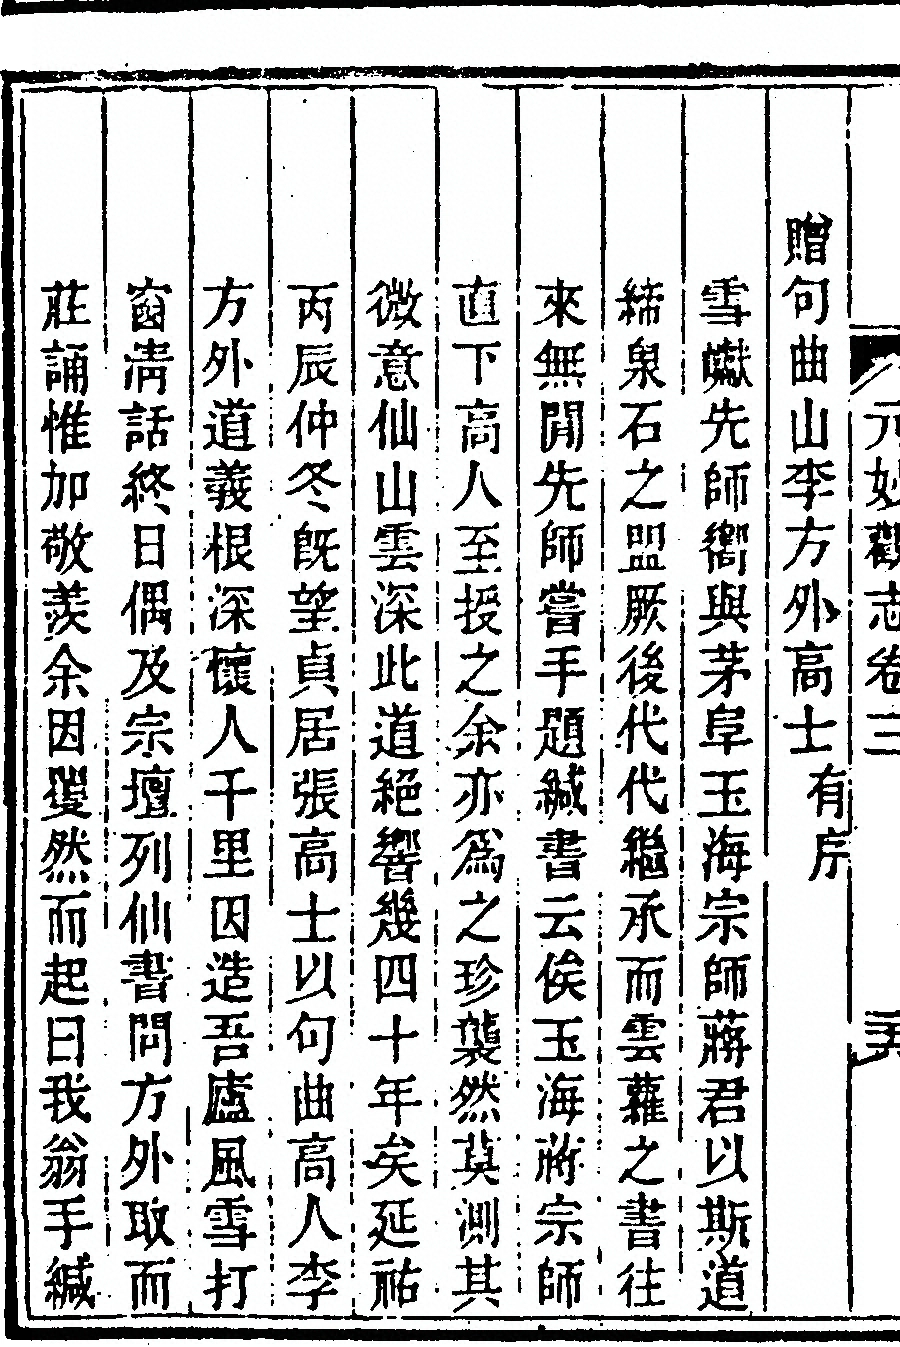 元妙觀志卷三
贈句曲山李方外高士有序
雪巘先師嚮與茅阜玉海宗師蔣君以斯道
締泉石之盟厥後代代繼承而雲蘿之書往
來無閒先師嘗手題緘書云俟玉海蔣宗師
直下高人至授之余亦爲之珍襲然莫測其
微意仙山雲深此道絕響幾四十年矣延祐
丙辰仲冬旣望貞居張高士以句曲高人李
方外道義根深懷人千里因造吾廬風雪打
窗清話終日偶及宗壇列仙書問方外取而
莊誦惟加敬羨余因矍然而起曰我翁手緘